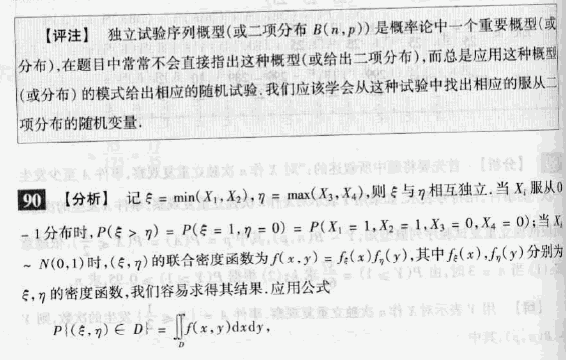 【评注】 独立试验序列概型(或二项分布 B(n,p))是概率论中一个重要概型(或
分布),在题目中常常不会直接指出这种概型(或给出二项分布),而总是应用这种概型
(或分布)的模式给出相应的随机试验.我们应该学会从这种试验中找出相应的服从二
项分布的随机变量.
90 【分析】 记 ξ = min(X₁,X₂),η = max(X₃,X₄),则 ξ 与 η 相互独立.当 Xᵢ 服从0
-1分布时,P(ξ > η) = P(ξ = 1,η = 0) = P(X₁ = 1,X₂ = 1,X₃ = 0,X₄ = 0);当 Xᵢ
~ N(0,1)时,(ξ,η)的联合密度函数为 f(x,y) = f_ξ(x)f_η(y),其中 f_ξ(x),f_η(y)分别为
ξ,η 的密度函数,我们容易求得其结果.应用公式
P{(ξ,η) ∈ D} = ∬_D f(x,y)dxdy,